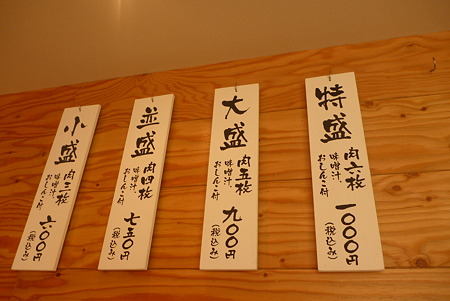 特盛
肉六枚
味噌汁、
おしんこ付
一〇〇〇円
(税込み)
大盛
肉五枚
味噌汁、
おしんこ付
九〇〇円
(税込み)
並盛
肉四枚
味噌汁、
おしんこ付
七五〇円
(税込み)
小盛
肉三枚
味噌汁、
おしんこ付
六〇〇円
(税込み)